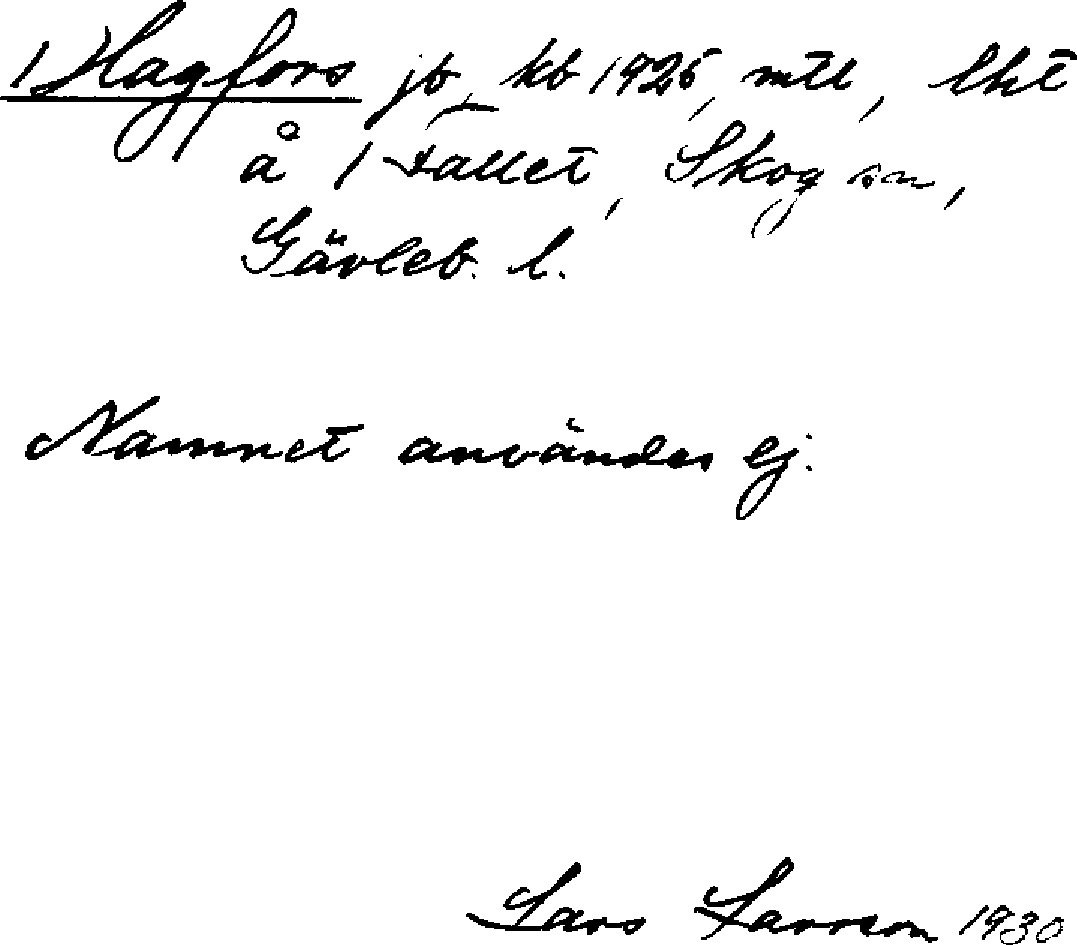 1 Hagfors jb, kb 1925, mtl, lht
å 1 Fallet, Skog sn,
Gävleb. l.
Namnet användes ej.
Lars Larsson 1930